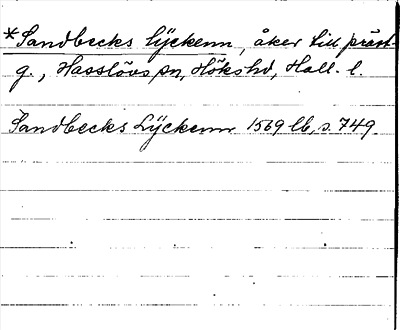 *Sandbecks lÿckenn, åker till präst-
g., Hasslövs sn, Hökshd, Hall. l.
Sandbecks Lÿckenn 1569 lb, s. 749.